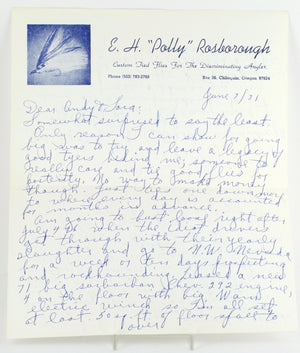 E. H. "Polly" Rosborough
Custom Tied Flies For The Discriminating Angler
Phone (503) 783-2760
Box 36, Chiloquin, Oregon 97624
June 7/71
Dear Andy &
Somewhat surprised to say the least
Only reason I can show for going
big was to try and leave a legacy of
good tyers behind me, someone I
really can
No way to make money
though. Just
to where every day is accounted
for months in advance.
Am going to bust loose right after
July 4th when the idiot drivers
get through with their yearly
slaughter and go to N.W. Nevada
for a week or ten days prospecting
and rockhounding. Leased a new
71 big suburban Chev. 292 engine,
4 on the floor with big Warn
electric winch so I'm all set
at last. 50 sq ft of floor
over